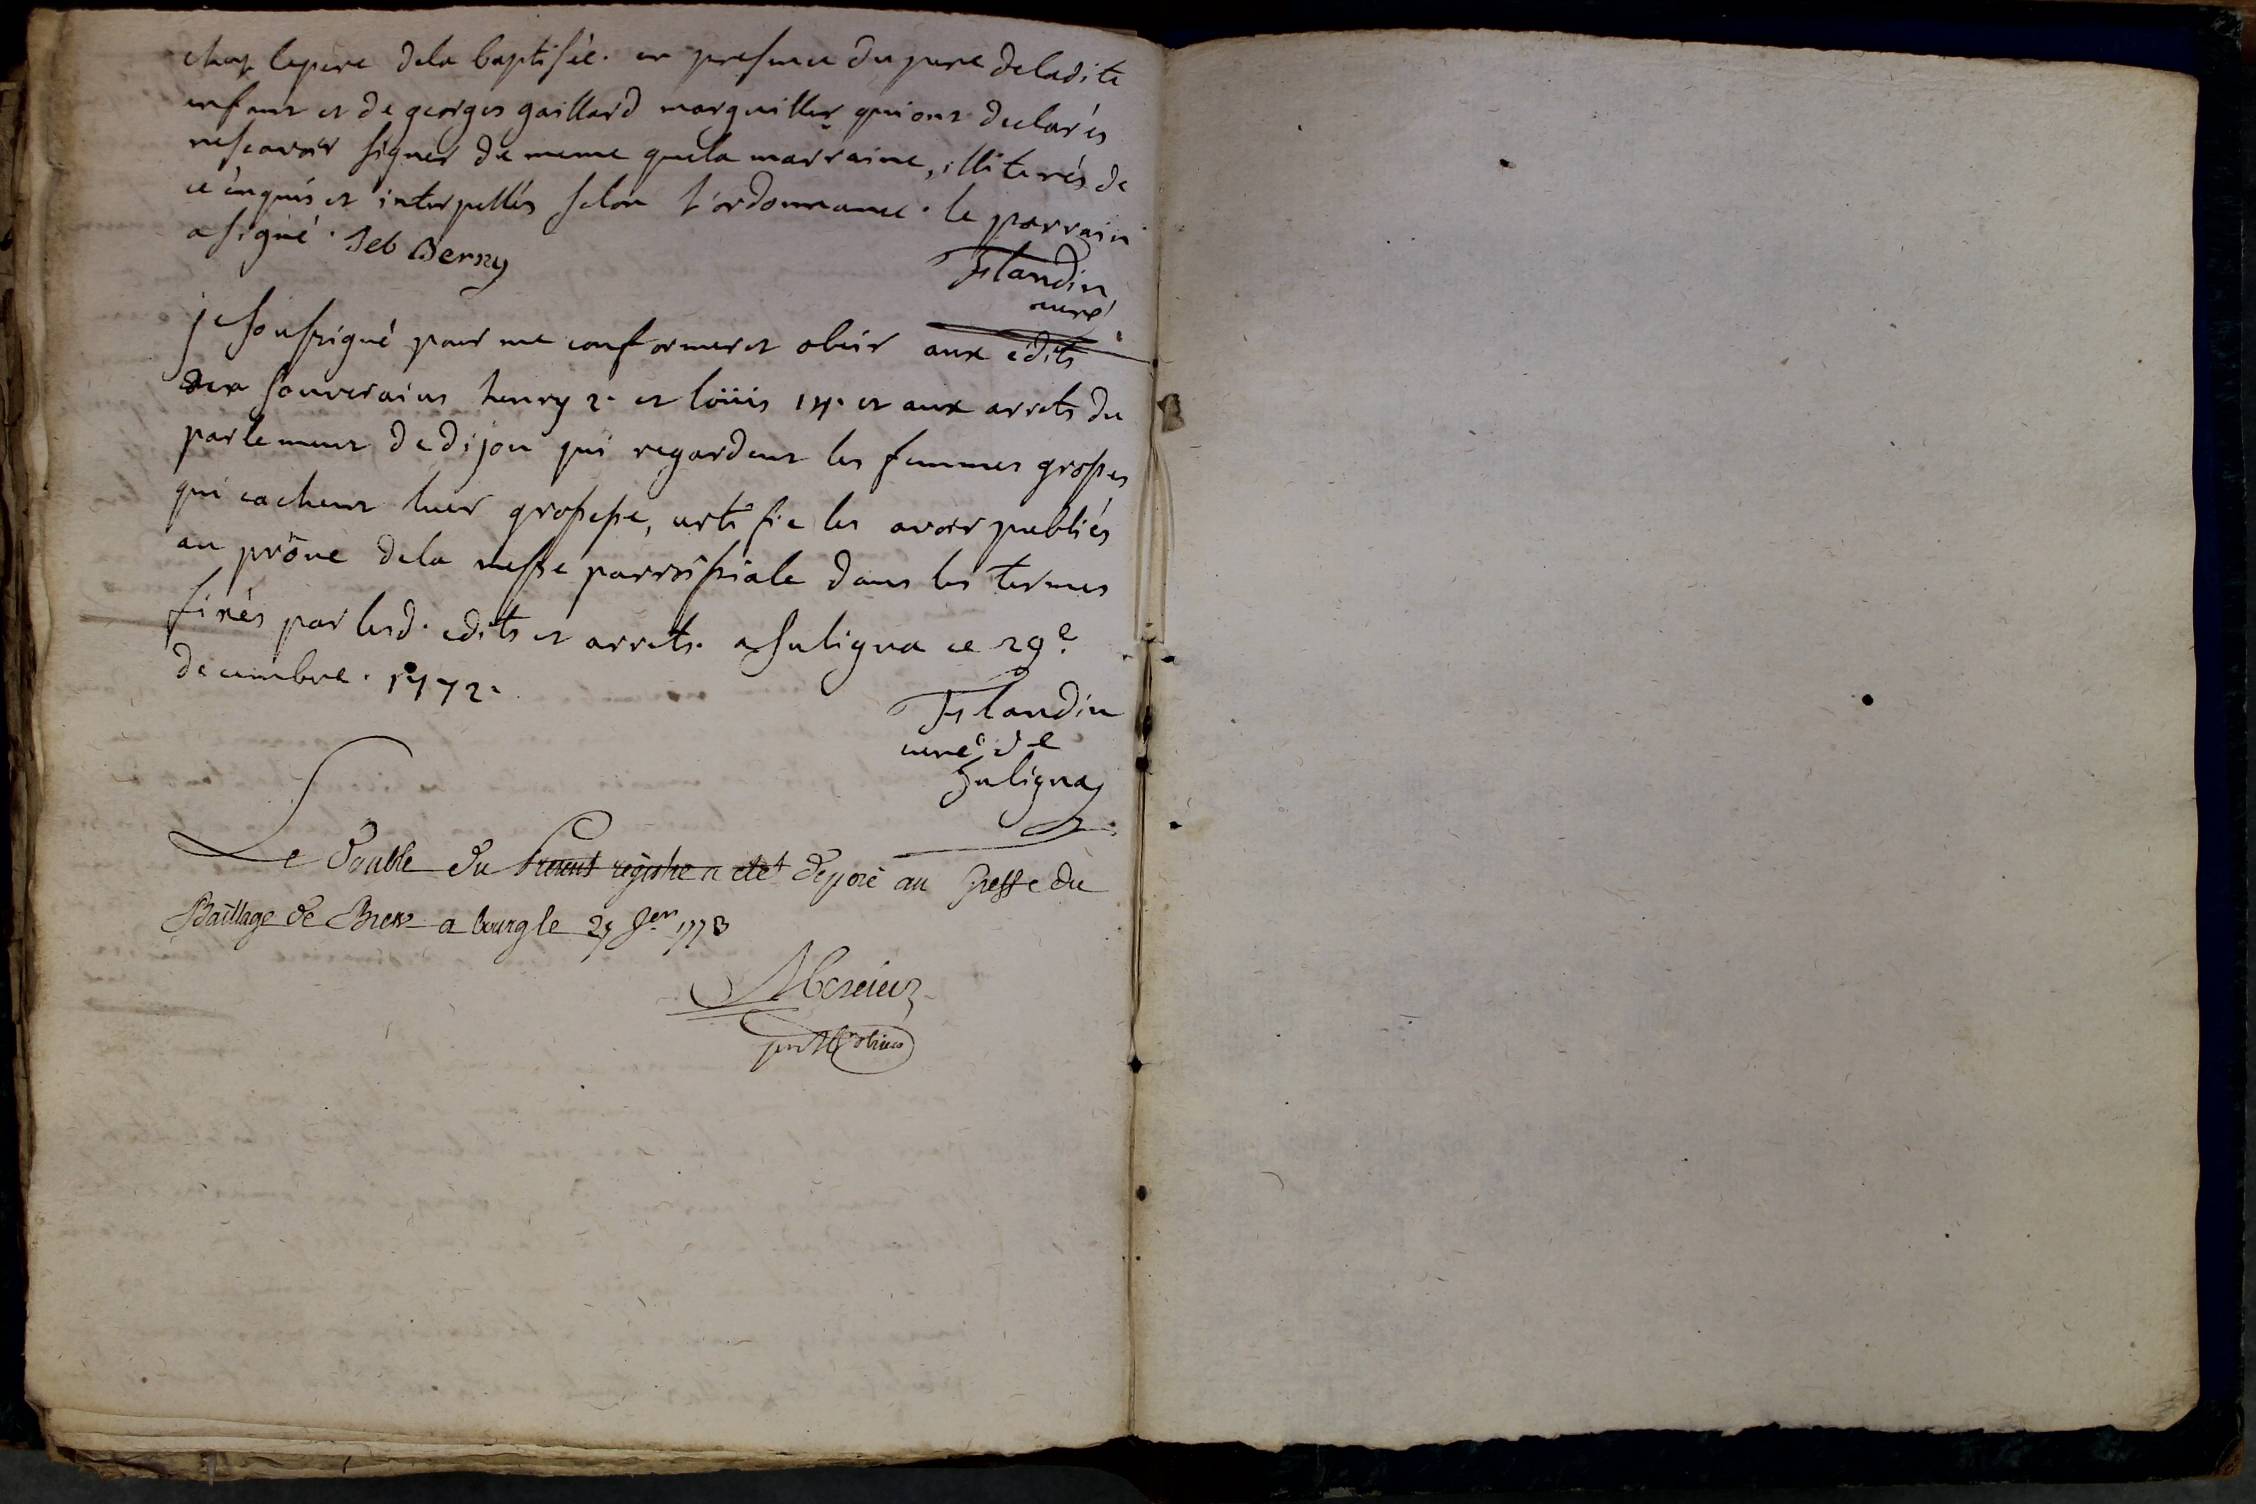 chez lepere dela baptisée. en presence du pere deladite
enfant et de georges gaillard marguiller qui ont declarés
nescavoir signer de meme quela marraine, illiterés de
ce enquis et interpellés selon l'ordonnance. le parrain
a signé. Seb Berny
Flandin
curé
je soussigné pour me conformer et obeir aux edits
des souverains henry 2. et loüis 14. et aux arrets du
parlement de dijon qui regardent les femmes grosses
qui cachent leur grossesse, certifie les avoir publiés
au prône dela messe parroissiale dans les termes
fixés par lesd. edits et arrets. a Suligna ce 29e
decembre. 1772.
Flandin
curé de
Suligna
Le double du Present registre a eté deposé au Greffe du
Baillage de Bresse a bourg le 27 Jer 1773
Mercier